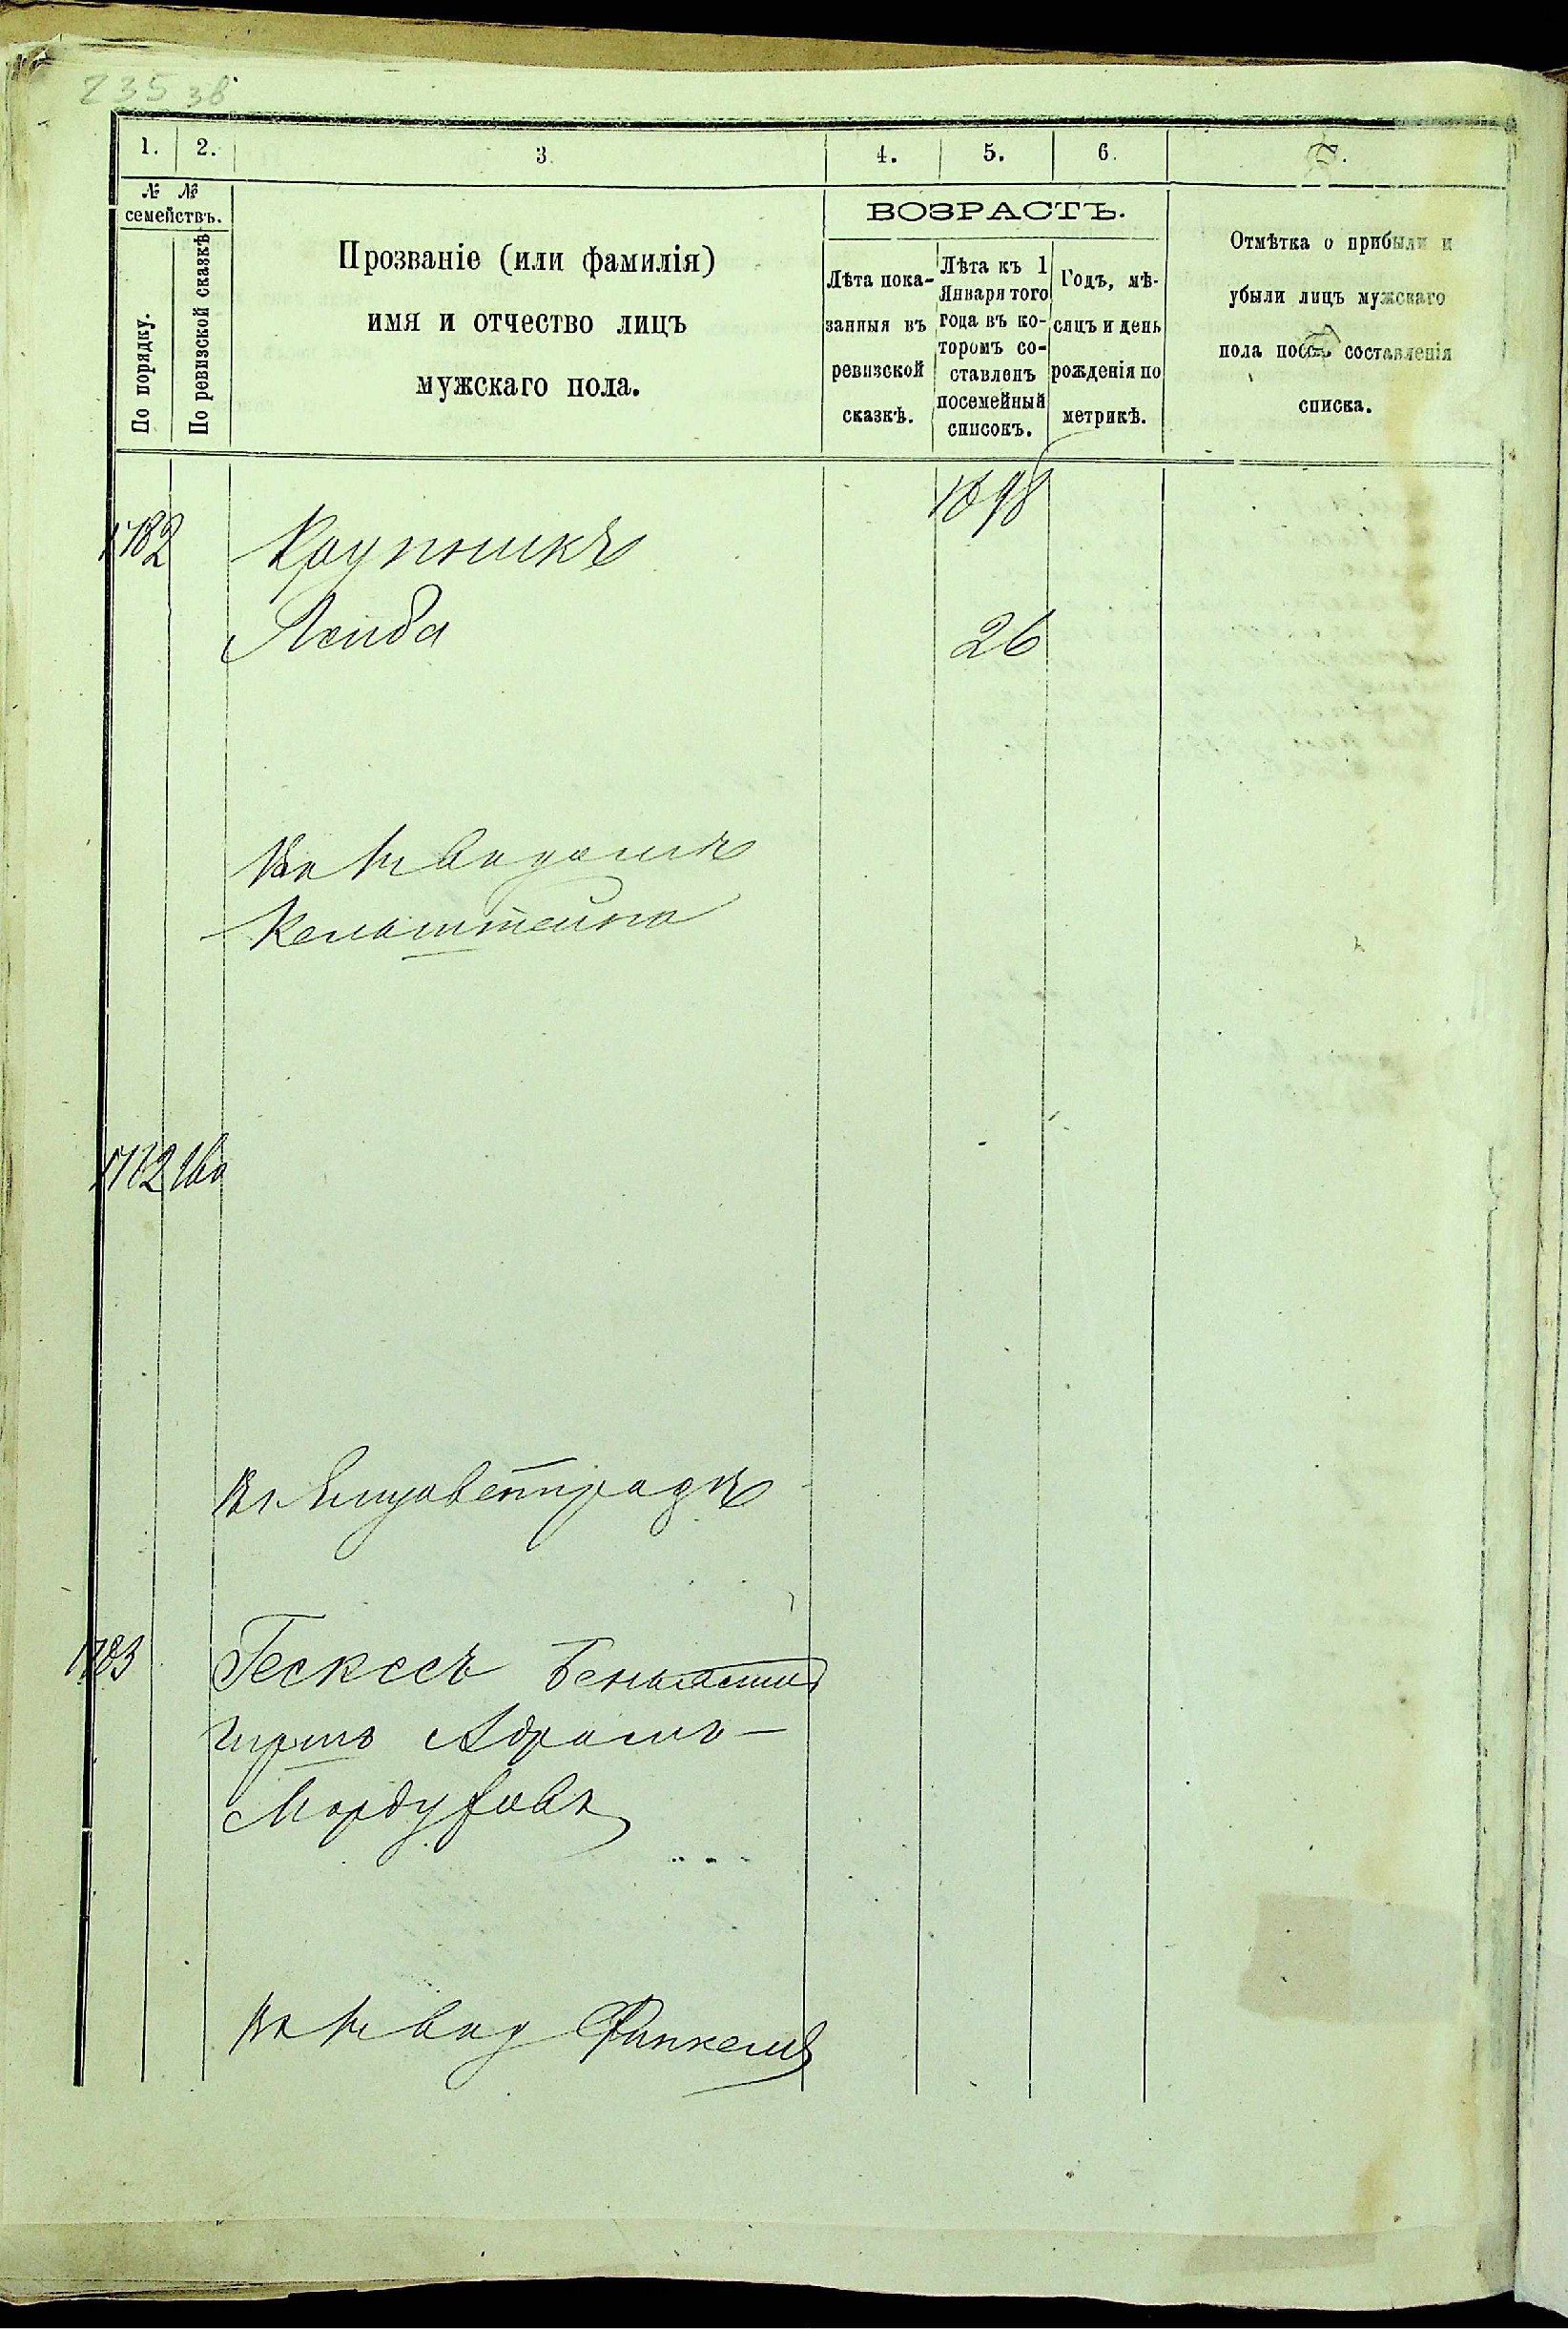 235 зв
1. 2. 3. 4. 5. 6. 7.
№ № семействъ.
По порядку.
По ревизской сказкѣ
Прозваніе (или фамилія)
имя и отчество лицъ
мужскаго пола.
ВОЗРАСТЪ.
Лѣта пока-
занныя въ
ревизской
сказкѣ.
Лѣта къ 1
Января того
года въ ко-
торомъ со-
ставленъ
посемейный
списокъ.
Годъ, мѣ-
сяцъ и день
рожденія по
метрикѣ.
Отмѣтка о прибыли и
убыли лицъ мужскаго
пола послѣ составленія
списка.
1898
1782 Крупникъ
Лейба 26
1782
въ Елисаветградѣ
1783 Гескесъ
Абрамъ-
Мордуховъ